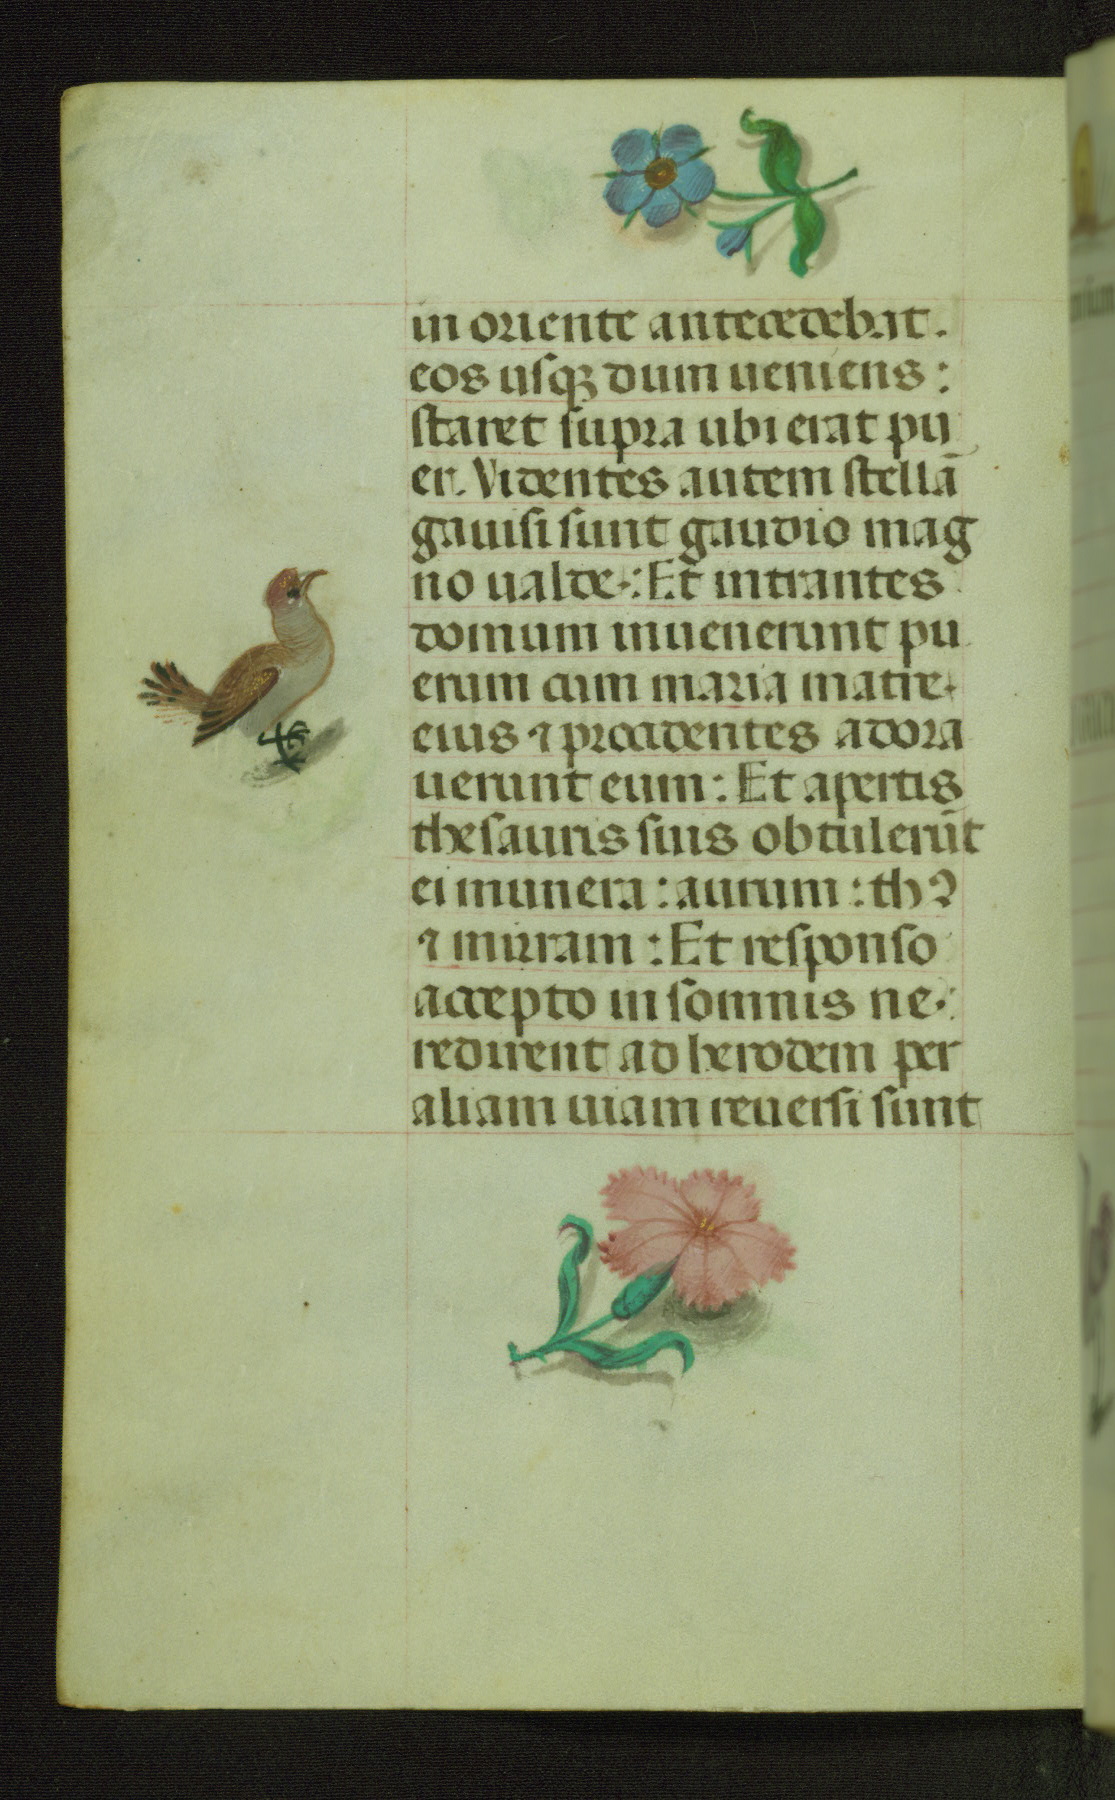 in oriente antecedebat.
eos usqꝫ dum ueniens:
staret supra ubi erat pu
er. Videntes autem stellā
gauisi sunt gaudio mag
no ualde: Et intrantes
domum inuenerunt pu
erum cum maria matre
eius ⁊ procidentes adora
uerunt eum: Et apertis
thesauris suis obtulerūt
ei munera: aurum: th
⁊ mirram: Et responso
accepto in somnis ne:
redirent ad herodem per
aliam uiam reuersi sunt